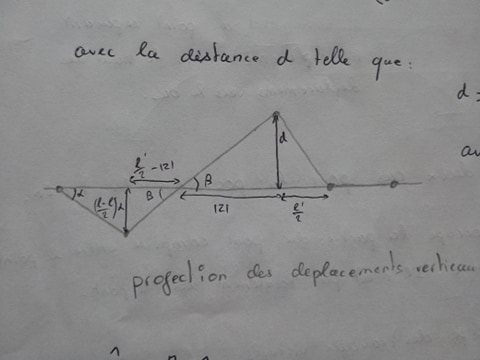 avec la distance d telle que:
d =
ℓ'/2 - 121
d
α
(ℓ-ℓ'/2)α
β
β
121
ℓ'/2
projection des deplacements verticau